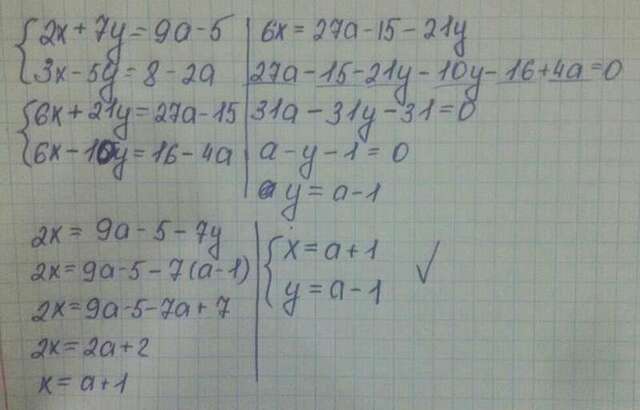 2x + 7y = 9a - 5
3x - 5y = 8 - 2a
6x + 21y = 27a - 15
6x - 10y = 16 - 4a
6x = 27a - 15 - 21y
27a - 15 - 21y - 10y - 16 + 4a = 0
31a - 31y - 31 = 0
a - y - 1 = 0
y = a - 1
2x = 9a - 5 - 7y
2x = 9a - 5 - 7(a - 1)
2x = 9a - 5 - 7a + 7
2x = 2a + 2
x = a + 1
x = a + 1
y = a - 1